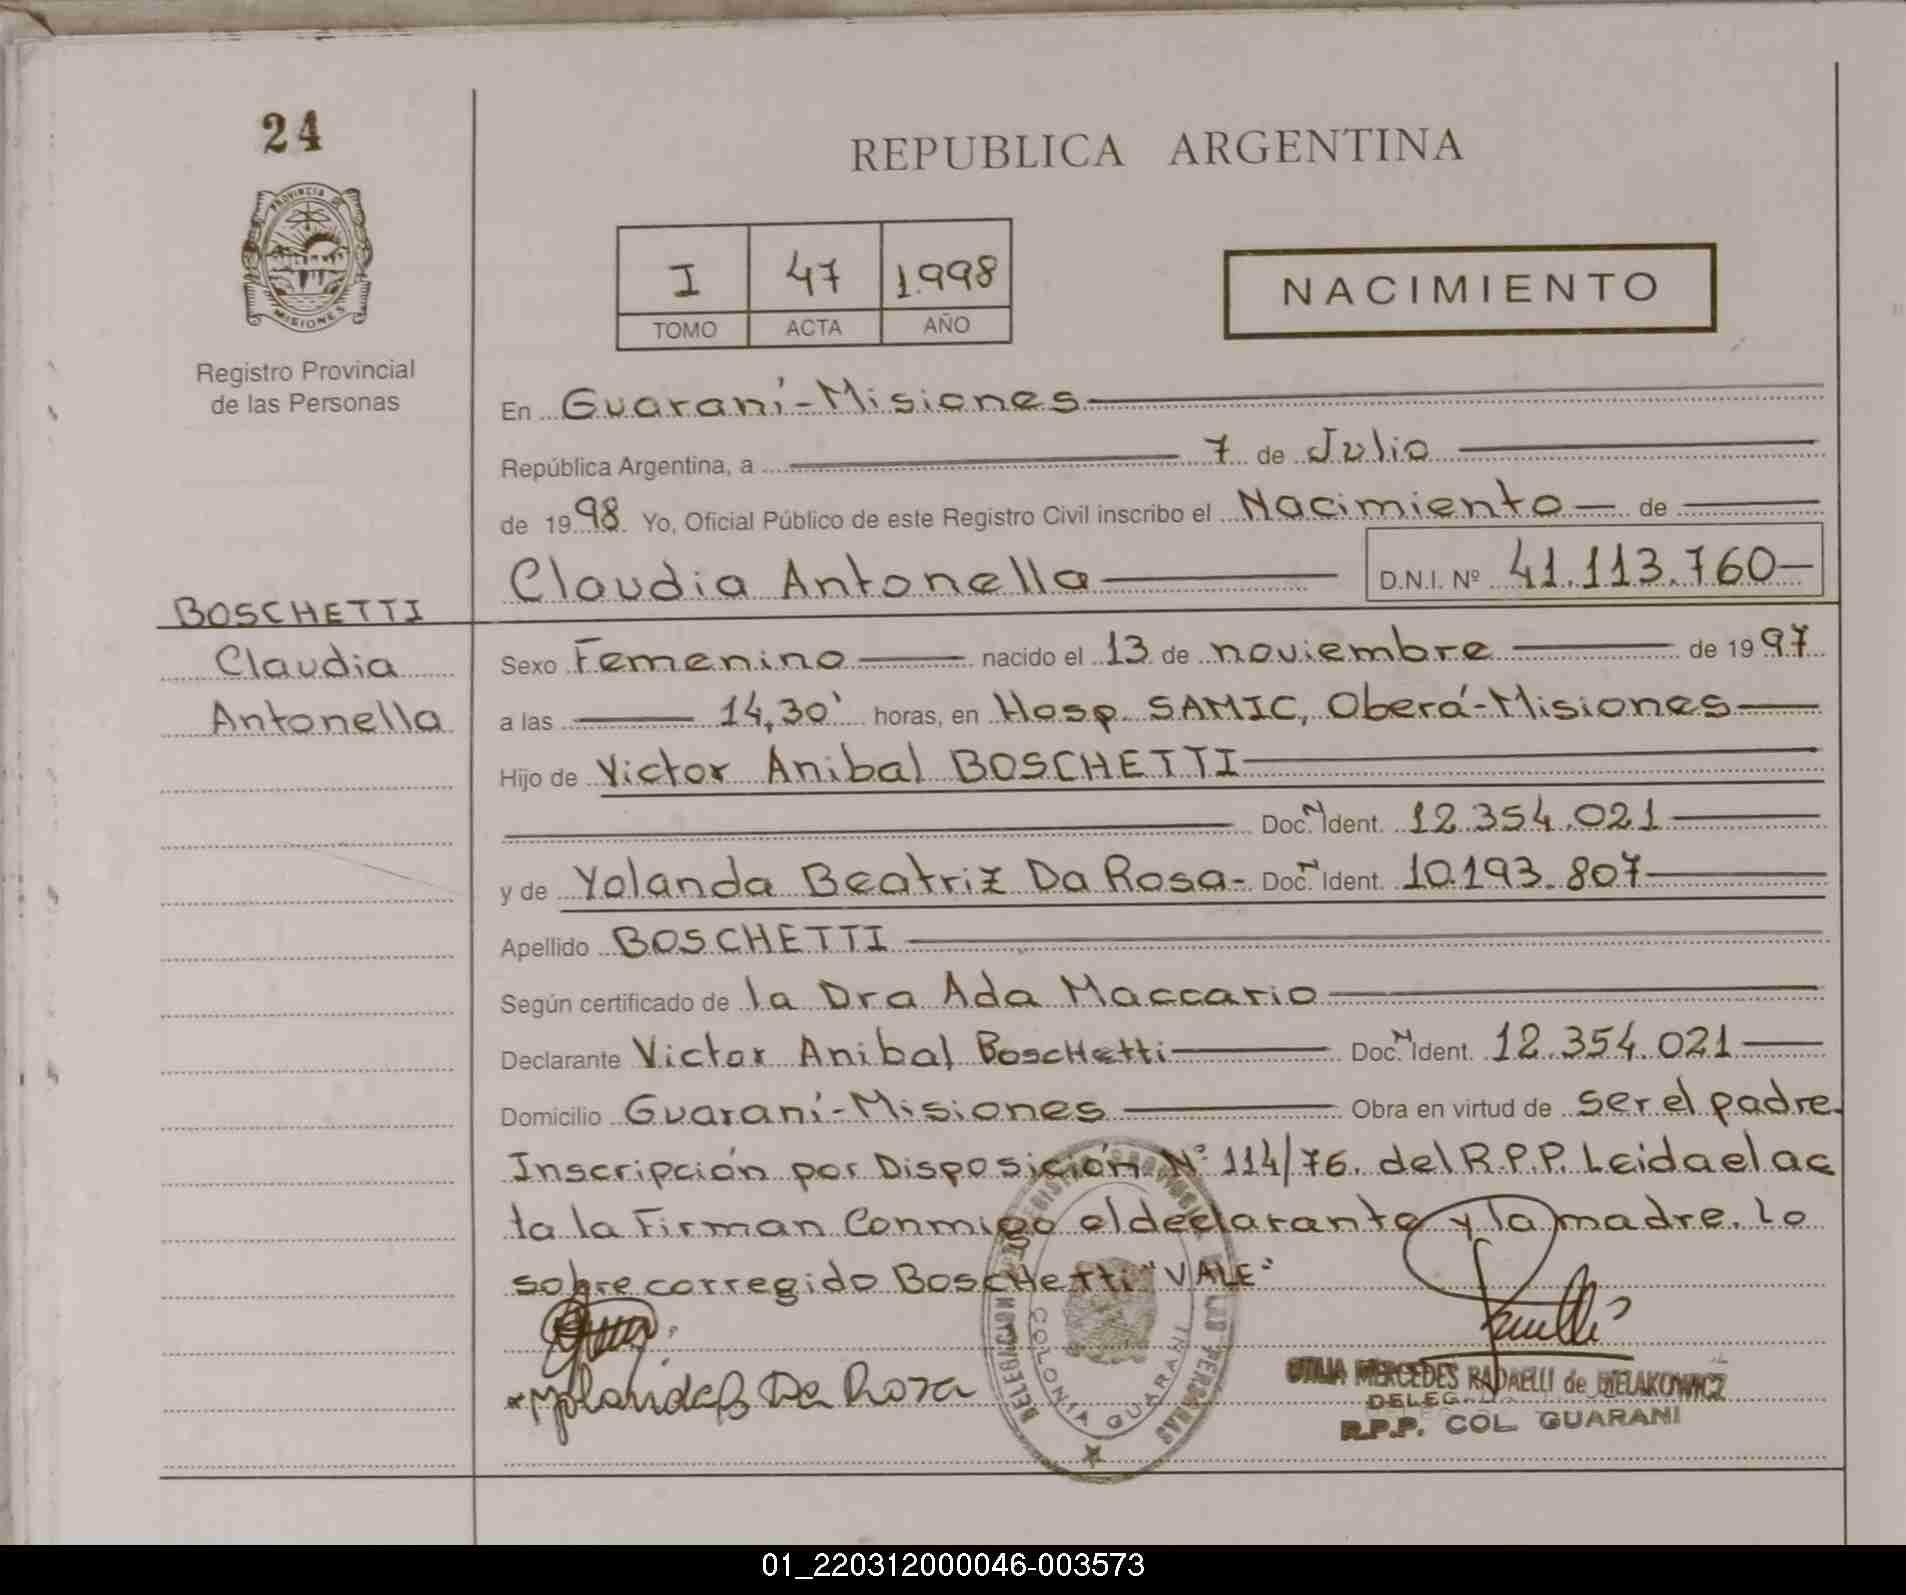 24
REPUBLICA ARGENTINA
PROVINCIA DE
MISIONES
I 47 1.998
TOMO ACTA AÑO
NACIMIENTO
Registro Provincial
de las Personas
En Guaraní-Misiones
República Argentina, a 7 de Julio
de 1998. Yo, Oficial Público de este Registro Civil inscribo el Nacimiento de
Claudia Antonella D.N.I. Nº 41.113.760
BOSCHETTI
Claudia
Antonella
Sexo Femenino nacido el 13 de noviembre de 1997
a las 14,30' horas, en Hosp. SAMIC, Oberá-Misiones
Hijo de Victor Anibal BOSCHETTI
Doc. N Ident. 12.354.021
y de Yolanda Beatriz Da Rosa- Doc. N Ident. 10.193.807
Apellido BOSCHETTI
Según certificado de la Dra Ada Maccario
Declarante Victor Anibal BoscHetti Doc. N Ident. 12.354.021
Domicilio Guaraní-Misiones Obra en virtud de ser el padre.
Inscripción por Disposición Nº 114/76. del R.P.P. Leida el ac
ta la Firman Conmigo el declarante y la madre. Lo
sobre corregido BoscHetti "VALE"
Yolanda B Da Rosa
COLONIA GUARANI
MERCEDES RADAELLI de BIELAKOWICZ
R.P.P. COL. GUARANI
01_220312000046-003573